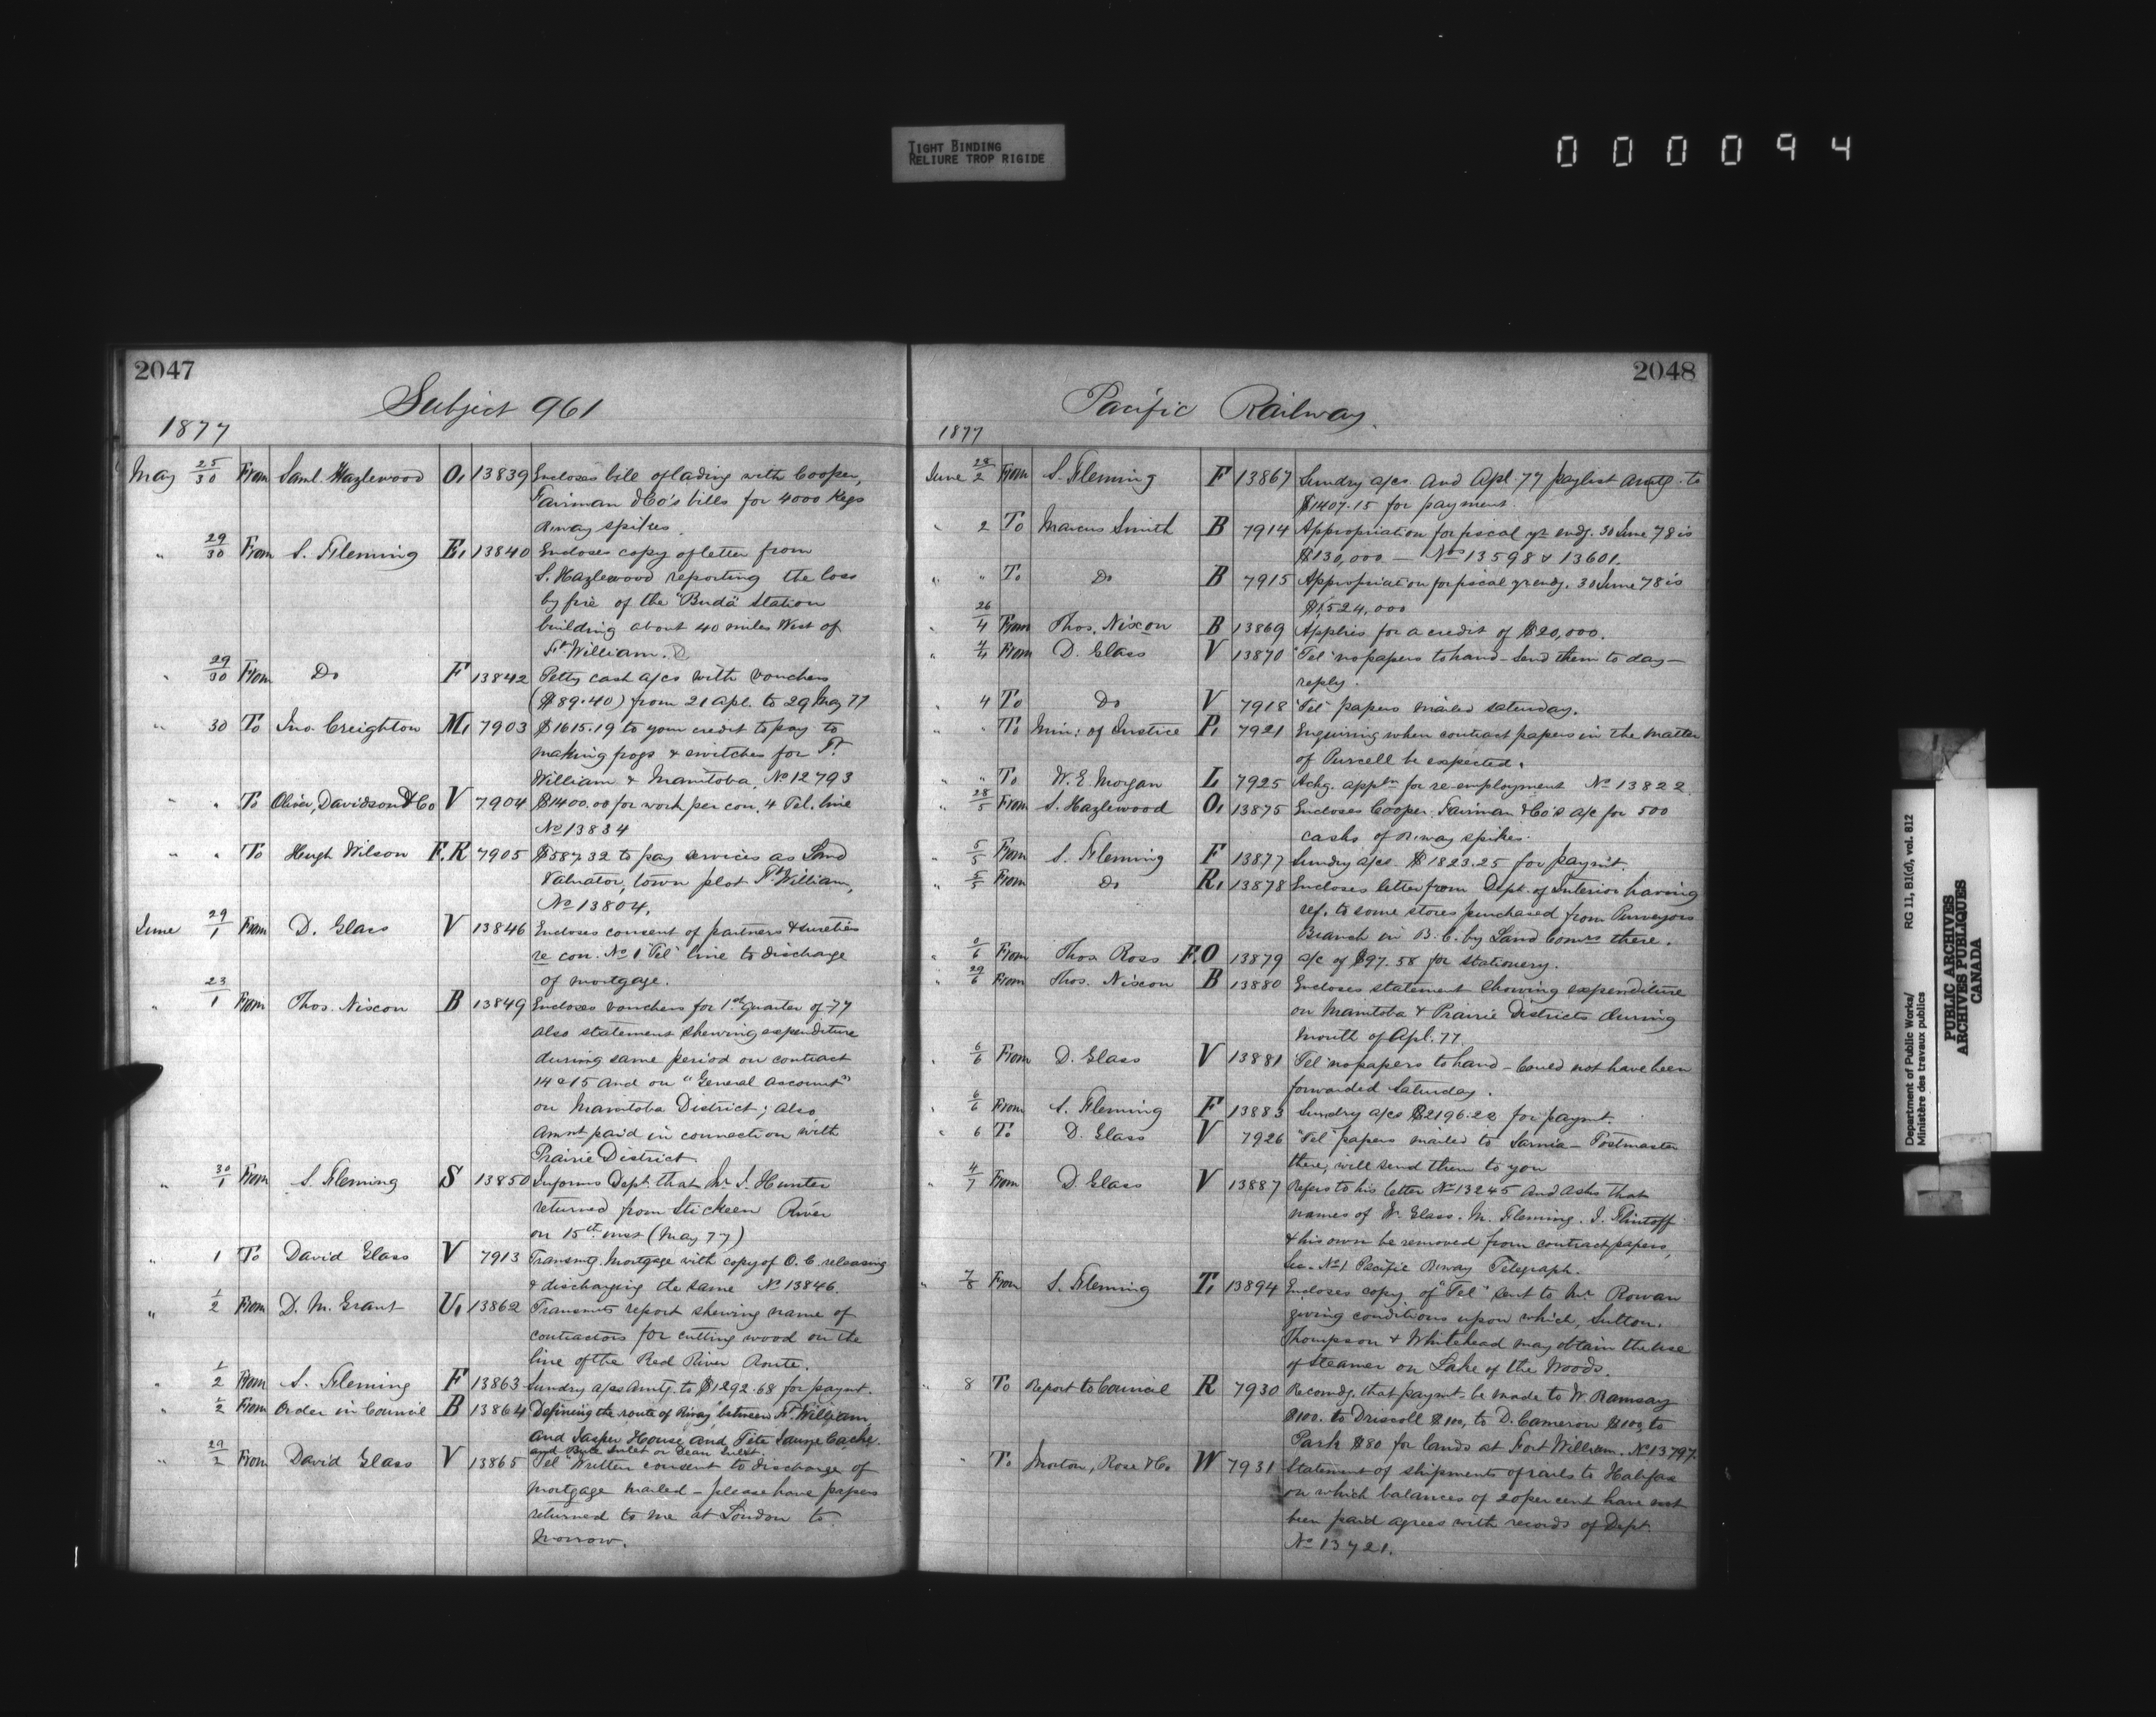 TIGHT BINDING
RELIURE TROP RIGIDE
000094
2047
Subject 961
1877
May 25/30 From Saml. Hazlewood O, 13839 Encloses bill of lading with Cooper,
Fairman & Co's bills for 4000 Kegs
R.way spikes.
" 29/30 From S. Fleming E, 13840 Encloses copy of letter from
S. Hazlewood reporting the loss
by fire of the "Buda" Station
building about 40 miles West of
Ft. William.
" 29/30 From Do F 13842 Petty cash a/cs with vouchers
($89.40) from 21 Apl. to 29 May 77
" 30 To Jno. Creighton M, 7903 $1615.19 to your credit to pay to
making frogs & switches for Ft.
William & Manitoba, No 12793
" " To Oliver, Davidson & Co V 7904 $1400.00 for work per con. 4 Tel. line
No 13834
" " To Hugh Wilson F.R 7905 $587.32 to pay services as Land
Valuator, town plot Ft. William,
No 13804.
June 29/1 From D. Glass V 13846 Encloses consent of partners & sureties
re con. No 1 "Tel" line to discharge
of mortgage.
" 23/1 From Thos. Nixon B 13849 Encloses vouchers for 1st quarter of 77
also statement shewing expenditure
during same period on contract
14 & 15 and on "General Account"
on Manitoba District; also
Amnt paid in connection with
Prairie District.
" 30/1 From S. Fleming S 13850 Informs Dept. that Mr J. Hunter
returned from Stickeen River
on 15th inst (May 77)
" 1 To David Glass V 7913 Transmtg. Mortgage with copy of O.C. releasing
& discharging the same No 13846.
" 1/2 From D. M. Grant U, 13862 Transmits report shewing name of
contractors for cutting wood on the
line of the Red River Route.
" 1/2 From S. Fleming F 13863 Sundry a/cs amtg. to $1292.68 for paymt.
" 1/2 From Order in Council B 13864 Defining the route of Rway between Ft. William
and Jasper House and Tête Jaune Cache.
and Bute Inlet or Dean Inlet.
" 29/2 From David Glass V 13865 "Tel" Written consent to discharge of
mortgage mailed - please have papers
returned to me at London to
morrow.
2048
Pacific Railway.
1877
June 28/2 From S. Fleming F 13867 Sundry a/cs and Apl. 77 paylist amtg. to
$1407.15 for payment.
" 2 To Marcus Smith B 7914 Appropriation for fiscal yr. endg. 30 June 78 is
$130,000 — Nos 13598 & 13601.
" " To Do B 7915 Appropriation for fiscal yr endg. 30 June 78 is
$1,524,000
" 26/4 From Thos. Nixon B 13869 Applies for a credit of $20,000.
" 4/4 From D. Glass V 13870 "Tel" no papers to hand - Send them to day -
reply.
" 4 To Do V 7918 "Tel" papers mailed Saturday.
" " To Min: of Justice P, 7921 Enquiring when contract papers in the matter
of Purcell be expected.
" " To W. E. Morgan L 7925 Ackg. appln for re-employment No 13822.
" 28/5 From S. Hazlewood O, 13875 Encloses Cooper, Fairman & Co's a/c for 500
casks of R.way spikes.
" 5/5 From S. Fleming F 13877 Sundry a/cs $1823.25 for paymt.
" 5/5 From Do R, 13878 Encloses letter from Dept. of Interior having
ref. to some stores purchased from Purveyors
Branch in B.C. by Land Comrs there.
" 6 From Thos Ross F.O 13879 a/c of $97.58 for stationery.
" 29/6 From Thos. Nixon B 13880 Encloses statement shewing expenditure
on Manitoba & Prairie Districts during
month of Apl. 77.
" 6/6 From D. Glass V 13881 "Tel" no papers to hand - Could not have been
forwarded Saturday.
" 6/6 From S. Fleming F 13883 Sundry a/cs $2196.20 for paymt.
" 6 To D. Glass V 7926 "Tel" papers mailed to Sarnia - Postmaster
there, will send them to you
" 4/7 From D. Glass V 13887 Refers to his letter No 13245 and asks that
names of Glass. M. Fleming. J. Flintoff
& his own be removed from contract papers,
Sec. No 1 Pacific Rway Telegraph.
" 7/8 From S. Fleming T, 13894 Encloses copy of "Tel" sent to Mr Rowan
giving conditions upon which, Sutton,
Thompson & Whitehead may obtain the use
of steamer on Lake of the Woods.
" 8 To Report to Council R 7930 Recomdg. that paymt be made to W. Ramsay
$100. to Driscoll $100, to D. Cameron $100, to
Park $80 for lands at Fort William. No 13797.
" To Morton, Rose & Co W 7931 Statement of shipments of rails to Halifax
on which balances of 20 per cent have not
been paid agrees with records of Dept.
No 13721.
Department of Public Works/ RG 11, B1(d), vol. 812
Ministère des travaux publics
PUBLIC ARCHIVES
ARCHIVES PUBLIQUES
CANADA